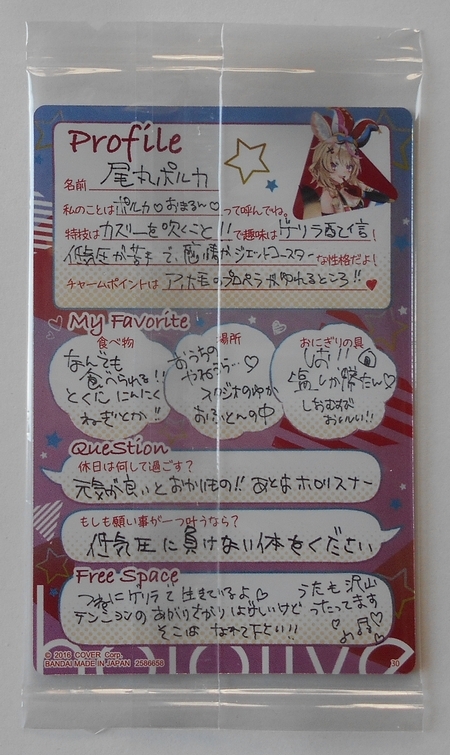 Profile
名前 尾丸ポルカ
私のことは ポルカ♡おまるん♡ って呼んでね。
特技は カズーを吹くこと!! で趣味は ゲリラ配信!
低気圧が苦手で、感情がジェットコースター な性格だよ!
チャームポイントは アホ毛のプロペラがゆれるところ!! ♥
My Favorite
食べ物
なんでも
食べられる!!
とくに にんにく
ねぎとか!!
場所
おうちの
スタジオのゆか
おふとんの中
おにぎりの具
しお!!
塩しか勝たん♡
しおむすび
おいしい!!
Question
休日は何して過ごす?
元気が良いとおかいもの!! あとはホロリスナー
もしも願い事が一つ叶うなら?
低気圧に負けない体をください
Free Space
つねにゲリラで生きているよ♡
テンションのあがりさがりはげしいけど
そこは なれて下さい!!
うたも沢山
うたってます
hololive
© 2016 COVER Corp.
BANDAI MADE IN JAPAN 2586656
30